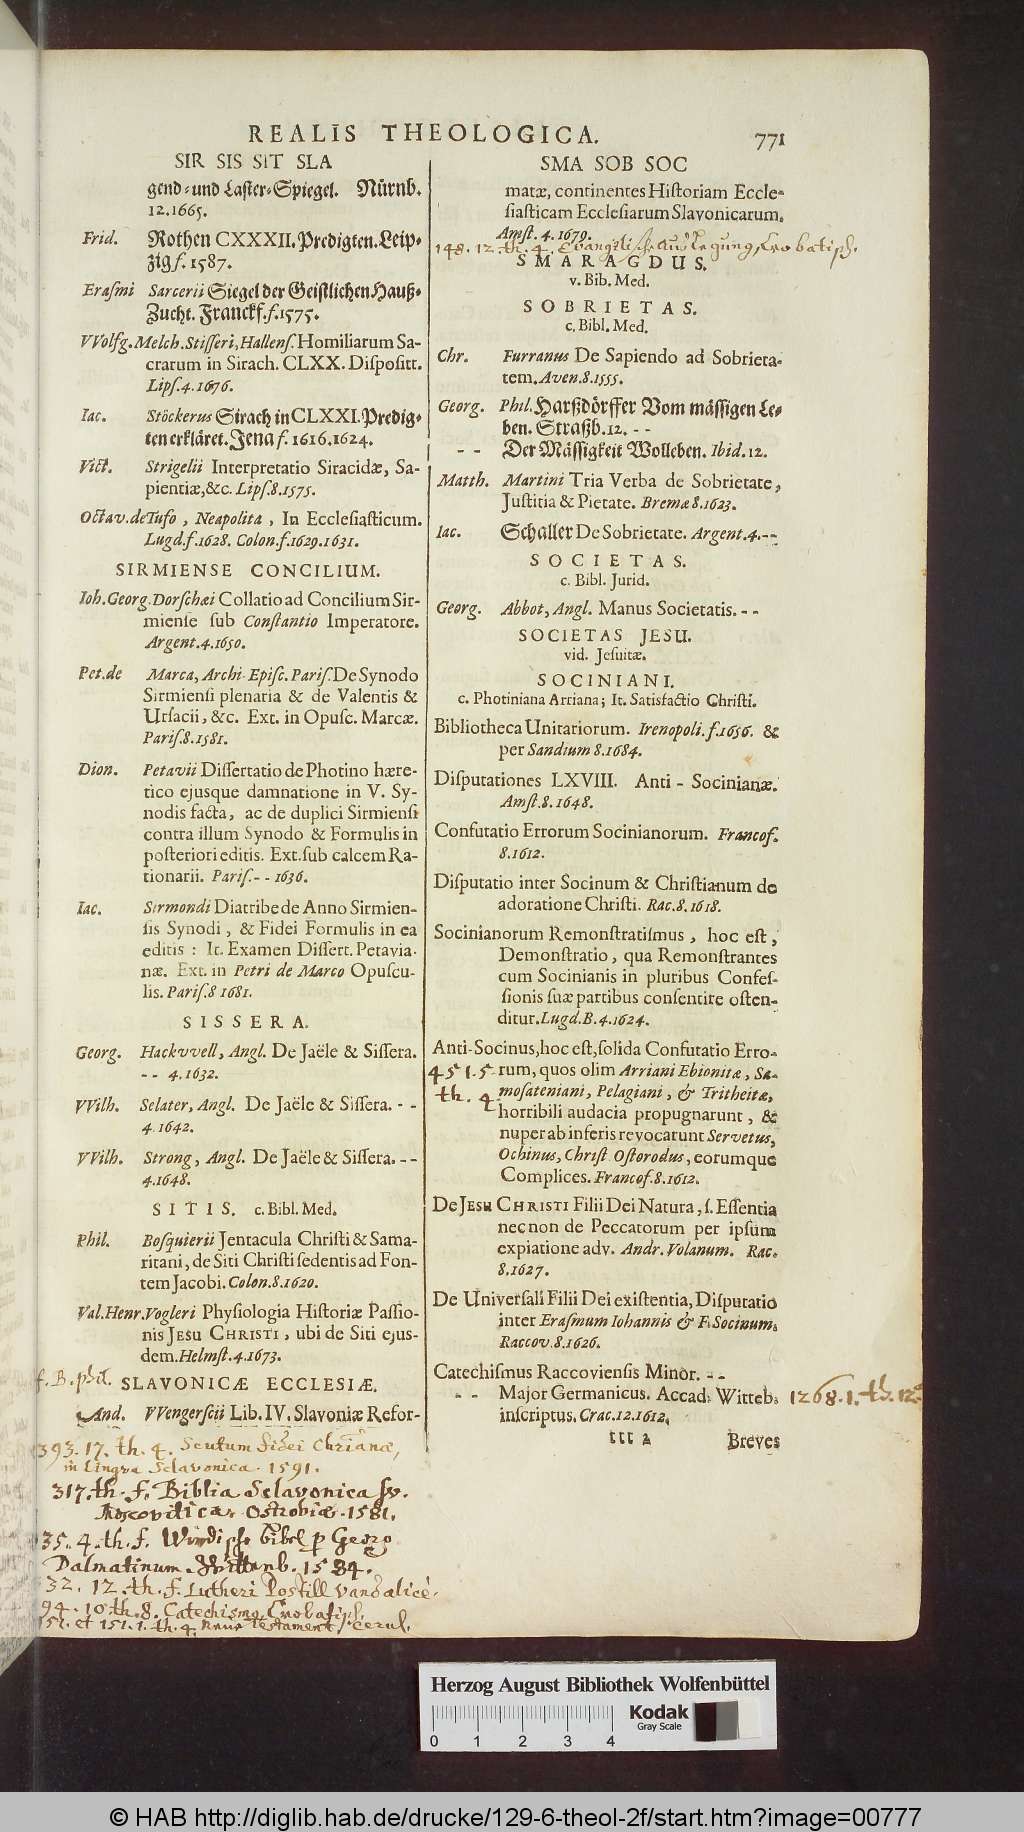 REALIS THEOLOGICA.
771
SIR SIS SIT SLA
gend-und Laster-Spiegel. Nürnb.
12.1665.
Frid. Rothen CXXXII. Predigten. Leip-
zig f. 1587.
Erasmi Sarcerii Siegel der Geistlichen Hauß-
Zucht. Franckf. f. 1575.
VVolfg. Melch. Stisseri, Hallens. Homiliarum Sa-
crarum in Sirach. CLXX. Dispositt.
Lips. 4. 1676.
Iac. Stöckerus Sirach in CLXXI. Predig-
ten erkläret. Jena f. 1616. 1624.
Vict. Strigelii Interpretatio Siracidæ, Sa-
pientiæ, &c. Lips. 8. 1575.
Octav. de Tufo, Neapolita, In Ecclesiasticum.
Lugd. f. 1628. Colon. f. 1629. 1631.
SIRMIENSE CONCILIUM.
Ioh. Georg. Dorschæi Collatio ad Concilium Sir-
miense sub Constantio Imperatore.
Argent. 4. 1650.
Pet. de Marca, Archi-Episc. Paris. De Synodo
Sirmiensi plenaria & de Valentis &
Ursacii, &c. Ext. in Opusc. Marcæ.
Paris. 8. 1581.
Dion. Petavii Dissertatio de Photino hære-
tico ejusque damnatione in V. Sy-
nodis facta, ac de duplici Sirmiensi
contra illum Synodo & Formulis in
posteriori editis. Ext. sub calcem Ra-
tionarii. Paris. - - 1636.
Iac. Sirmondi Diatribe de Anno Sirmien-
sis Synodi, & Fidei Formulis in ea
editis: It. Examen Dissert. Petavia-
næ. Ext. in Petri de Marco Opuscu-
lis. Paris. 8 1681.
SISSERA.
Georg. Hackvvell, Angl. De Jaële & Sissera.
- - 4. 1632.
VVilh. Selater, Angl. De Jaële & Sissera. - -
4. 1642.
VVilh. Strong, Angl. De Jaële & Sissera. - -
4. 1648.
SITIS. c. Bibl. Med.
Phil. Bosquierii Jentacula Christi & Sama-
ritani, de Siti Christi sedentis ad Fon-
tem Jacobi. Colon. 8. 1620.
Val. Henr. Vogleri Physiologia Historiæ Passio-
nis JESU CHRISTI, ubi de Siti ejus-
dem. Helmst. 4. 1673.
f. B. phil.
SLAVONICÆ ECCLESIÆ.
And. VVengerscii Lib. IV. Slavoniæ Refor-
393. 17. th. 4. Scutum fidei Chrianæ,
in Lingva Sclavonica. 1591.
317. th. f. Biblia Sclavonica sv.
Moscovitica. Ostrobiæ. 1581.
35. 4. th. f. Windische Bibel p Georg
Dalmatinum. Wittenb. 1584.
32. 12. th. f. Lutheri Postill Vandalicè.
94. 10 th. 8. Catechismg Crobatisch.
151. 1. th. 4. Testament
SMA SOB SOC
matæ, continentes Historiam Eccle-
siasticam Ecclesiarum Slavonicarum.
Amst. 4. 1679.
148. 12. th. 4. Evangelische Auslegung, Crobatisch.
SMARAGDUS.
v. Bib. Med.
SOBRIETAS.
c. Bibl. Med.
Chr. Furranus De Sapiendo ad Sobrieta-
tem. Aven. 8. 1555.
Georg. Phil. Harßdörffer Vom mässigen Le-
ben. Straßb. 12. - -
- - Der Mässigkeit Wolleben. Ibid. 12.
Matth. Martini Tria Verba de Sobrietate,
Justitia & Pietate. Bremæ 8. 1623.
Iac. Schaller De Sobrietate. Argent. 4. - -
SOCIETAS.
c. Bibl. Jurid.
Georg. Abbot, Angl. Manus Societatis. - -
SOCIETAS JESU.
vid. Jesuitæ.
SOCINIANI.
c. Photiniana Arriana; It. Satisfactio Christi.
Bibliotheca Unitariorum. Irenopoli. f. 1656. &
per Sandium 8. 1684.
Disputationes LXVIII. Anti-Socinianæ.
Amst. 8. 1648.
Confutatio Errorum Socinianorum. Francof.
8. 1612.
Disputatio inter Socinum & Christianum de
adoratione Christi. Rac. 8. 1618.
Socinianorum Remonstratismus, hoc est,
Demonstratio, qua Remonstrantes
cum Socinianis in pluribus Confes-
sionis suæ partibus consentire osten-
ditur. Lugd. B. 4. 1624.
Anti-Socinus, hoc est, solida Confutatio Erro-
451. 5. rum, quos olim Arriani Ebionitæ, Sa-
th. 4 mosateniani, Pelagiani, & Tritheitæ,
horribili audacia propugnarunt, &
nuper ab inferis revocarunt Servetus,
Ochinus, Christ Ostorodus, eorumque
Complices. Francof. 8. 1612.
De JESU CHRISTI Filii Dei Natura, s. Essentia
nec non de Peccatorum per ipsum
expiatione adv. Andr. Volanum. Rac.
8. 1627.
De Universali Filii Dei existentia, Disputatio
inter Erasmum Iohannis & F. Socinum.
Raccov. 8. 1626.
Catechismus Raccoviensis Minor. - -
- - Major Germanicus. Accad. Witteb. 1268. 1. th. 12°
inscriptus. Crac. 12. 1612.
ttt 2
Breves
Herzog August Bibliothek Wolfenbüttel
Kodak
Gray Scale
0 1 2 3 4
© HAB http://diglib.hab.de/drucke/129-6-theol-2f/start.htm?image=00777